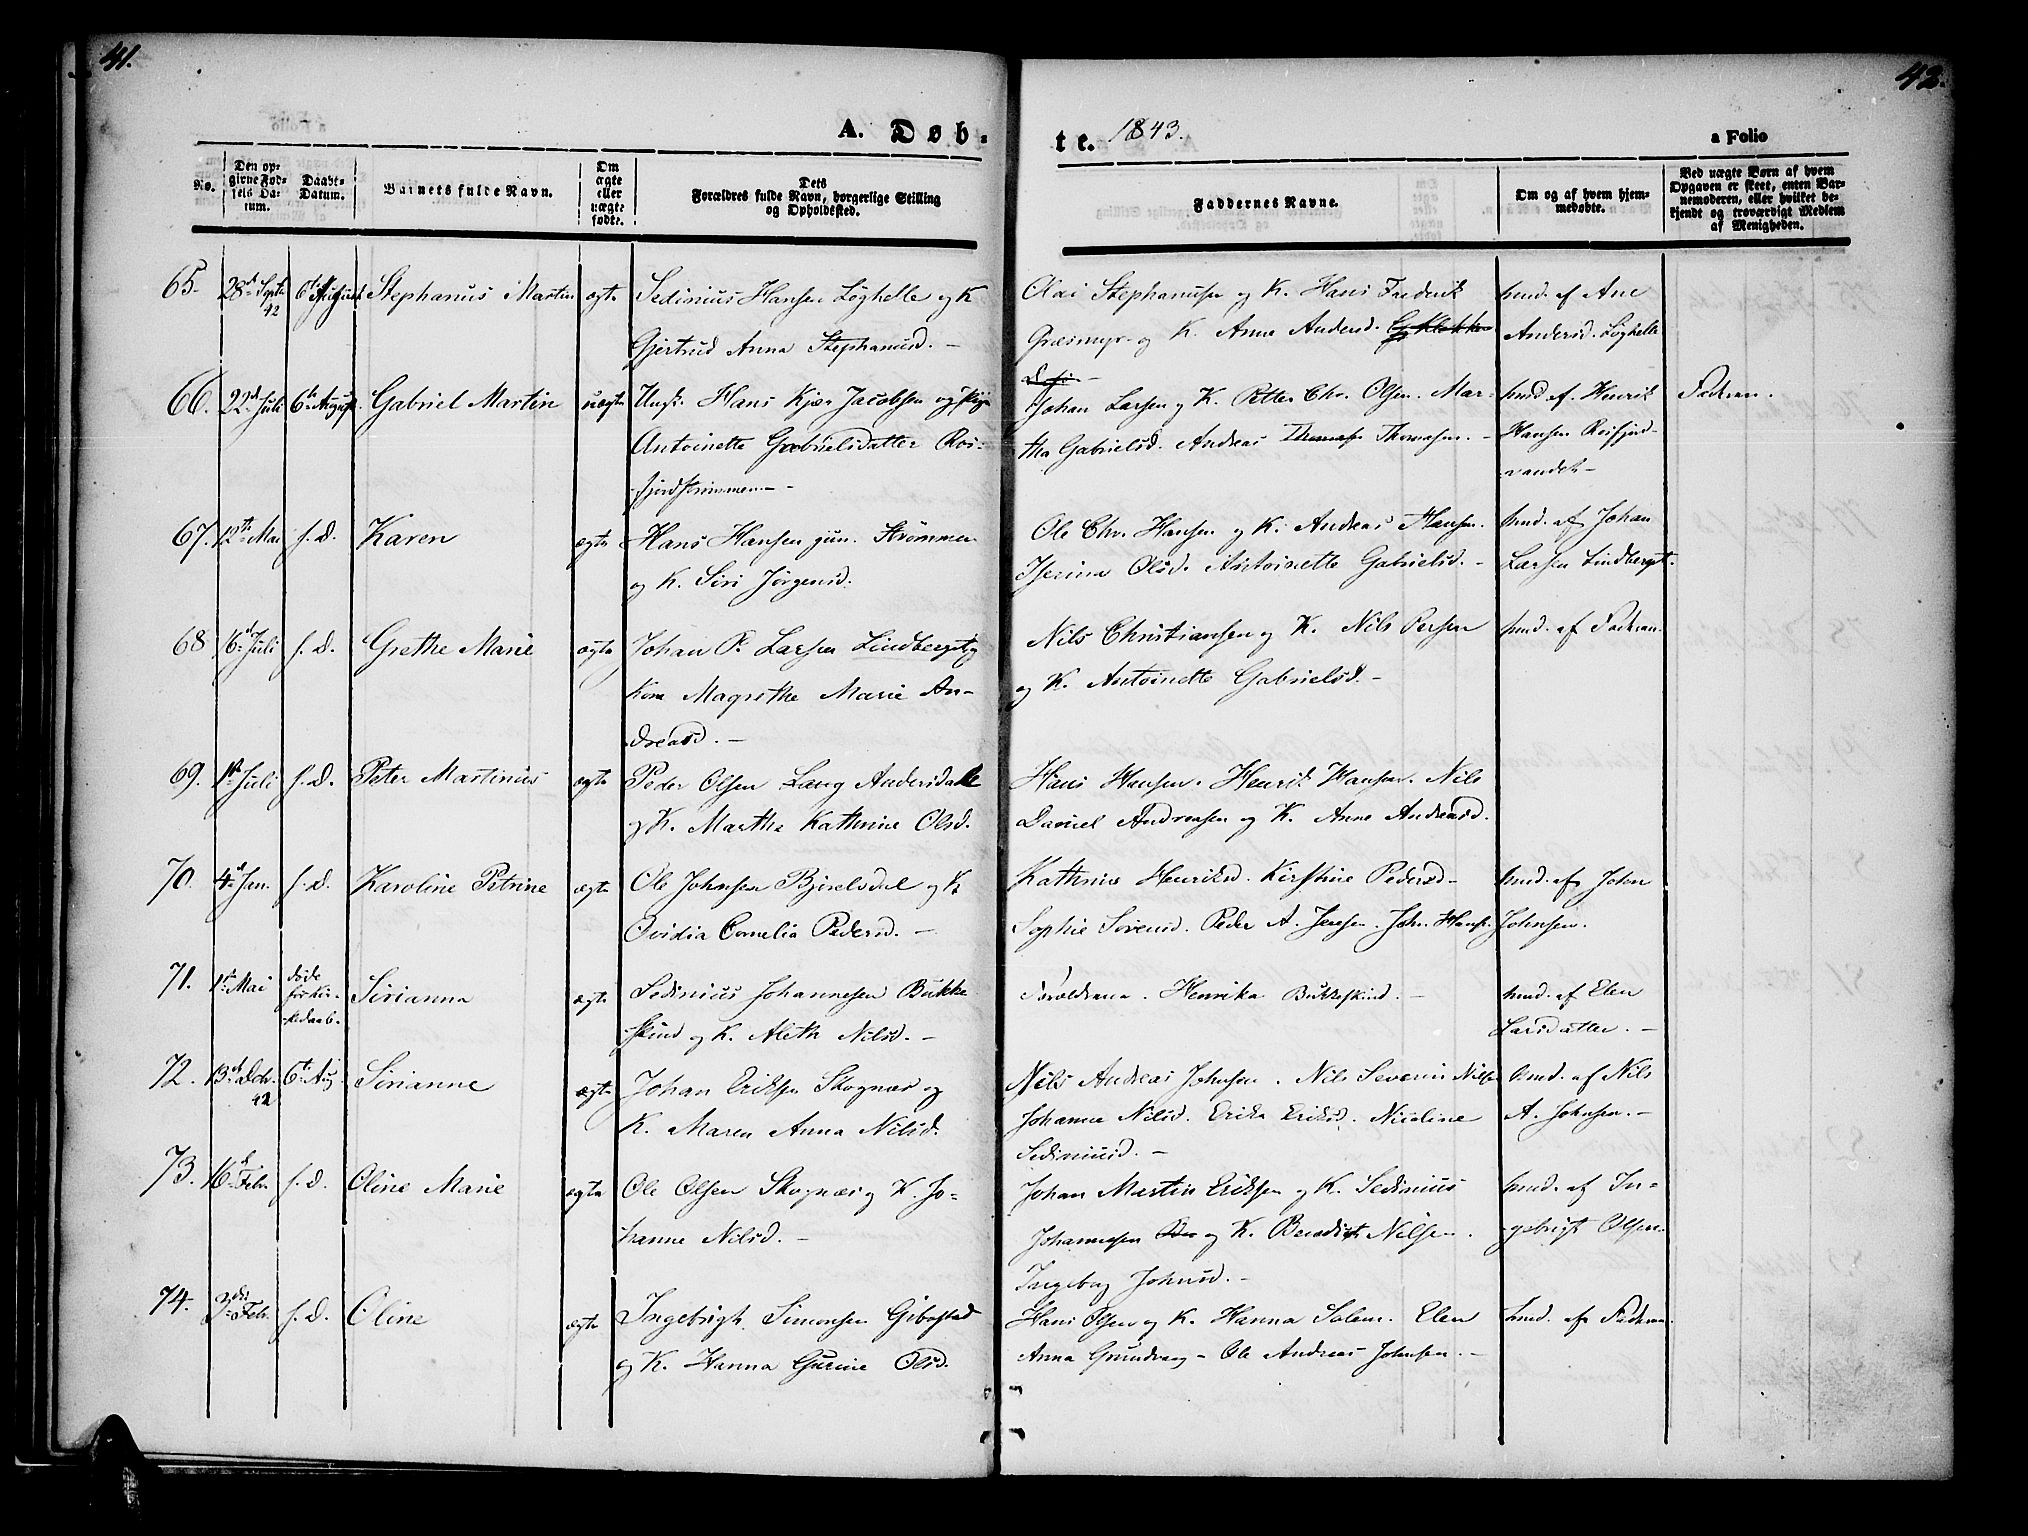 41.
42.
A. Døb-
te. 1843.
a Folio
No.
Den op-
givne Fød-
sels Da-
tum.
Daabs-
Datum.
Barnets fulde Navn.
Om
ægte
eller
uægte
fødte.
Dets
Forældres fulde Navn, borgerlige Stilling
og Opholdssted.
Faddernes Navne.
Om og af hvem hjem-
medøbte.
Ved uægte Børn af hvem
Opgaven er skeet, enten Bar-
nemoderen, eller hvilket be-
kjendt og troværdigt Medlem
af Menigheden.
65. 28de Septr 42 6te August Stephanus Martin ægte Sedinius Hansen Løghelle og K
Gjertrud Anna Stephanusd. -
Olai Stephanusen og K. Hans Frederik
Græsmyr og K. Anne Andersd.
hmd. af Ane
Andersd. Løghelle
66. 22de Juli 6te August Gabriel Martin uægte Ungk. Hans Kjær Jacobsen og Pige
Antoinette Gabrielsdatter Ros-
fjordstrømmen -
Johan Larsen og K. Petter Chr. Olsen. Mar-
tha Gabrielsd. Andreas Thomæsen. -
hmd. af Henrik
Hansen Rosfjord-
vandet -
Fadren.
67. 12te Mai s. D. Karen ægte Hans Hansen jun. Strømmen
og K. Siri Jørgensd.
Ole Chr. Hansen og K. Andreas Hansen.
Iserina Olsd. Antoinette Gabrielsd. -
hmd. af Johan
Larsen Lindberget.
68 16de Juli s. D. Grethe Marie ægte Johan P. Larsen Lindberget og
Kone Magrethe Marie An-
dreasd. -
Nils Christiansen og K. Nils Persen
og K. Antoinette Gabrielsd. -
hmd. af Fadren.
69. 1ste Juli s. D. Peter Martinus ægte Peder Olsen Lang Andersdale
og K. Martha Kathrine Olsd.
Hans Hansen. Henrik Hansen. Nils
Daniel Andreasen og K. Anne Andreasd.
70. 4de Jan. s. D. Karoline Petrine ægte Ole Johnsen Bjorelsdal og K
Ovidia Cornelia Pedersd. -
Kathrine Henriksd. Kirstine Pedersd -
Sophie Sørensd. Peder A. Jensen. Joh. Hans.
hmd. af John
Johnsen.
71. 1ste Mai døde
før Kir-
kedaab. Sirianna ægte Sedinius Johannesen Bukke
skind og K. Aleth Nilsd. -
Forældrene. Henrika Bukkeskind. -
hmd. af Elen
Larsdatter. -
72. 13de Octr. 42 6te Aug Sirianne ægte Johan Eriksen Skognæs og
K. Maren Anna Nilsd.
Nils Andreas Johnsen. Nils Severin Nilsen
Johanna Nilsd. Erika Eriksd. Nicoline
Sediniusd. -
hmd. af Nils
A. Johnsen. -
73. 16de Febr. s. D. Oline Marie ægte Ole Olsen Skognæs og K. Jo-
hanne Nilsd. -
Johan Martin Eriksen og K. Sedinius
Johannesen og K. Benedict Nilsen.
Ingeborg Johnsd. -
hmd. af In-
gebrigt Olsen.
74. 3die Febr. s. D. Oline ægte Ingebrigt Simonsen Gibostad
og K. Hanna Gurine Olsd.
Hans Olsen og K. Hanna Salem. Elen
Anna Grundvaag - Ole Andreas Johnsen. -
hmd. af Fadren.